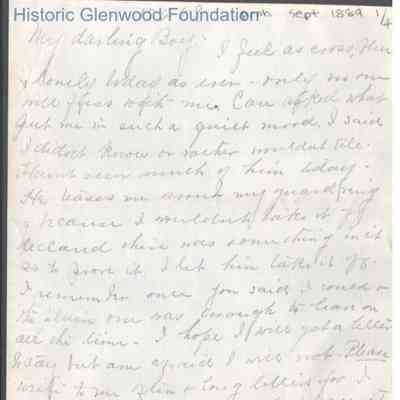 Historic Glenwood Foundation
Sept 1889 1/4
My darling Boy.
I feel as cross, blue
& lonely today as ever - only no one
will fuss with me. Cam asked what
put me in such a quiet mood. I said
I didn't know or rather wouldn't tell.
Havnt seen much of him today.
He teases me about my guard ring
& because I wouldn't take it off
declared there was something in it
so to prove it I let him take it off.
I remember once you said I
the one was enough to lean on
all the time. I hope I will get a letter
today but am afraid I will not. Please
write to me often & long letters for I